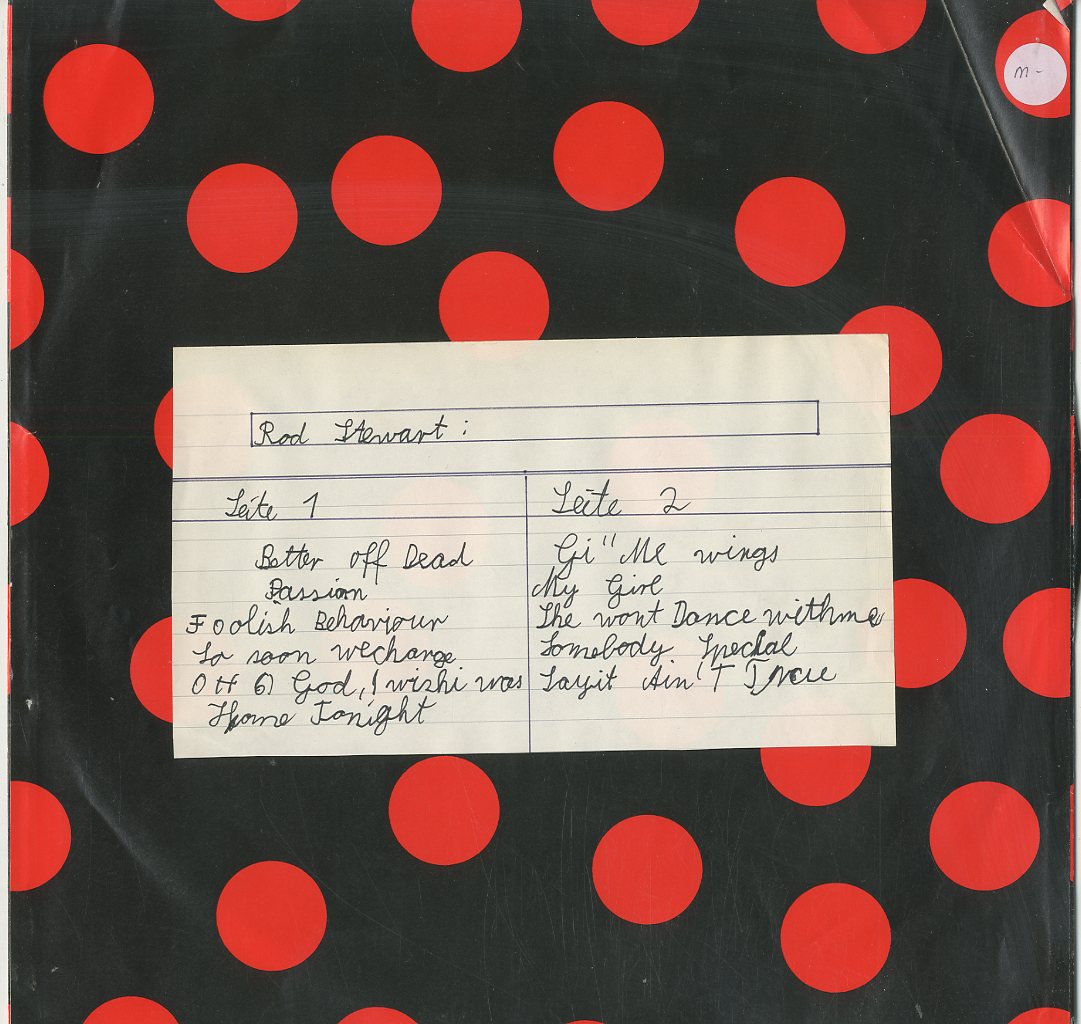 m-
Rod Stewart:
Seite 1
Better off Dead
Passion
Foolish Behaviour
So soon wechange
OH God, I wishi was
Home Tonight
Seite 2
Gi" Me wings
My Girl
She wont Dance withme
Somebody Special
Sayit Ain'T True